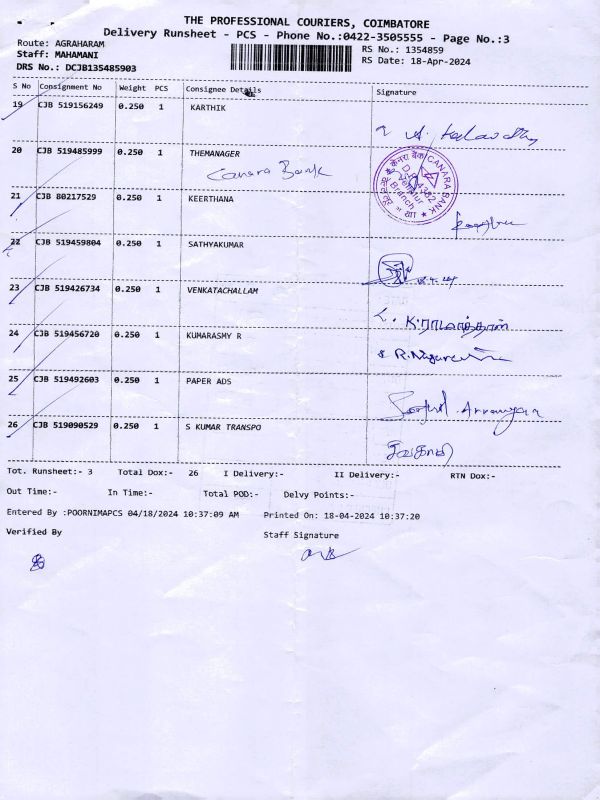 THE PROFESSIONAL COURIERS, COIMBATORE
Delivery Runsheet - PCS - Phone No.:0422-3505555 - Page No.:3
Route: AGRAHARAM
RS No.: 1354859
Staff: MAHAMANI
RS Date: 18-Apr-2024
DRS No.: DCJB135485903
S No Consignment No Weight PCS Consignee Details Signature
19 CJB 519156249 0.250 1 KARTHIK
20 CJB 519485999 0.250 1 THEMANAGER
Canara Bank
CANARA BANK
Branch
21 CJB 80217529 0.250 1 KEERTHANA
22 CJB 519459804 0.250 1 SATHYAKUMAR
23 CJB 519426734 0.250 1 VENKATACHALLAM
24 CJB 519456720 0.250 1 KUMARASMY R
25 CJB 519492603 0.250 1 PAPER ADS
26 CJB 519090529 0.250 1 S KUMAR TRANSPO
Tot. Runsheet:- 3 Total Dox:- 26 I Delivery:- II Delivery:- RTN Dox:-
Out Time:- In Time:- Total POD:- Delvy Points:-
Entered By :POORNIMAPCS 04/18/2024 10:37:09 AM Printed On: 18-04-2024 10:37:20
Verified By Staff Signature